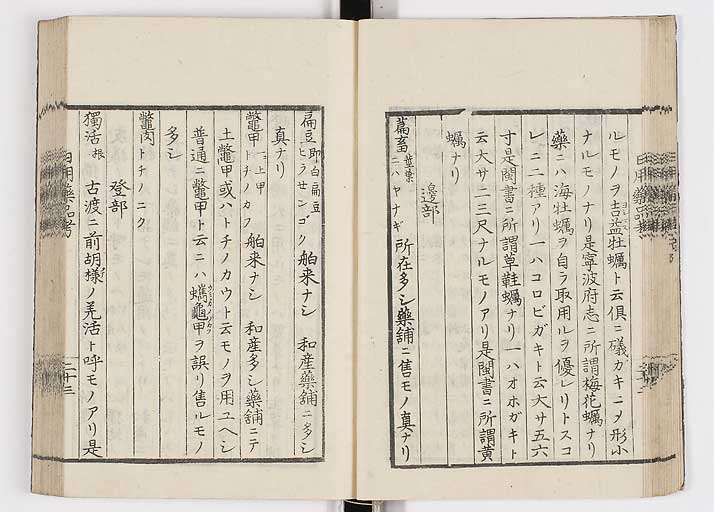 ルモノヲ吉益牡蠣ト云俱ニ礒ガキニヲ形小
ナルモノナリ是寧波府志ニ所謂梅花蠣ナリ
藥ニハ海牡蠣ヲ自ラ取用ルヲ優レリトスコ
レニ二種アリ一ハコロビガキト云大サ五六
寸是閩書ニ所謂草鞋蠣ナリ一ハオホガキト
云大サ二三尺ナルモノアリ是閩書ニ所謂黄
蠣ナリ
邉部
萹畜 ニハヤナギ 所在多シ藥舗ニ售モノ真ナリ
扁豆 即白扁豆 ヒラセンゴク 舶来ナシ 和産藥舗ニ多シ
真ナリ
鼈甲 上甲 トチノカフ 舶来ナシ 和産多シ藥舗ニテ
土鼈甲或ハトチノカウト云モノヲ用ユヘシ
普通ニ鼈甲ト云ニハ蠵龜甲ヲ誤リ售ルモノ
多シ
鼈肉 トチノニク
登部
獨活 根 古渡ニ前胡様ノ羌活ト呼モノアリ是
日用藥品考
二十三